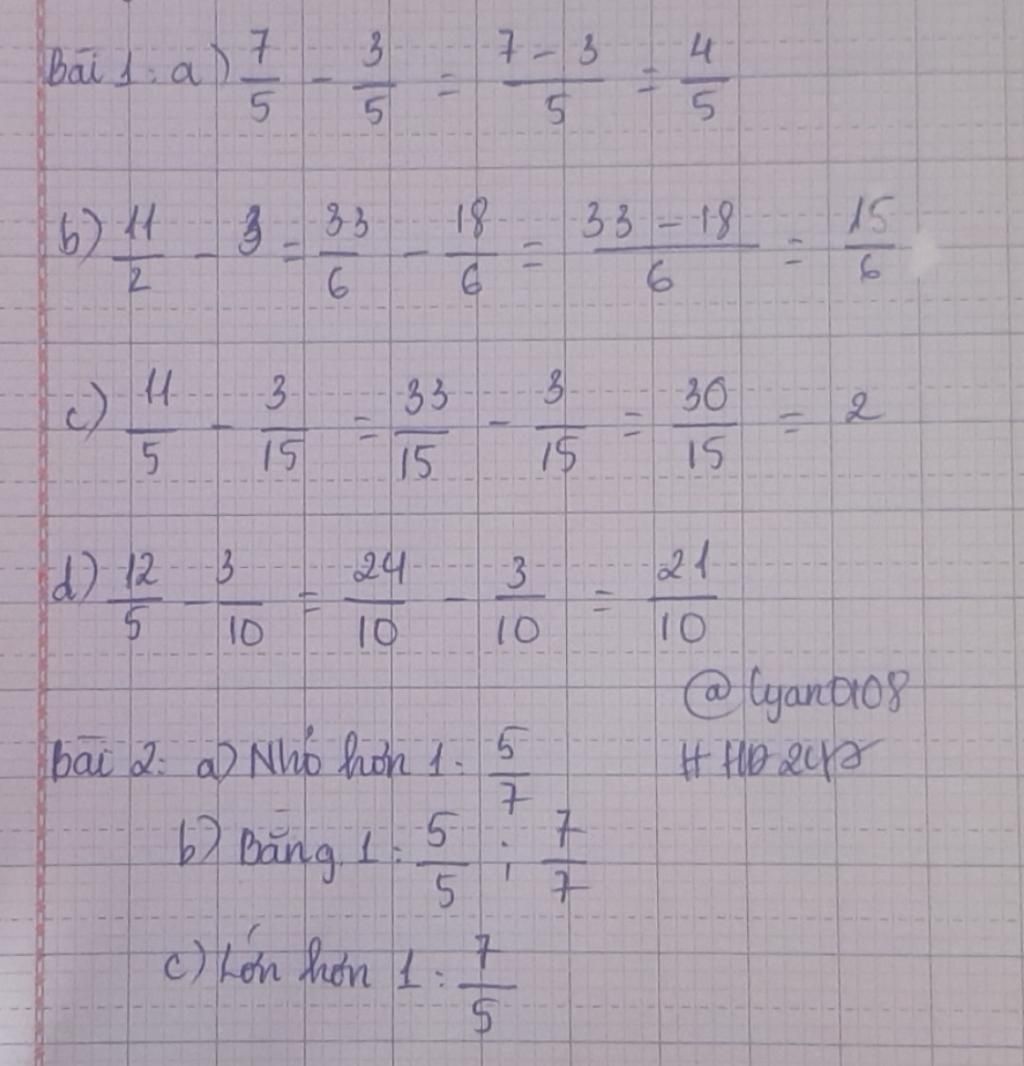 Bài 1: a) 7/5 - 3/5 = 7 - 3/5 = 4/5
b) 11/2 - 3 = 33/6 - 18/6 = 33 - 18/6 = 15/6
c) 11/5 - 3/15 = 33/15 - 3/15 = 30/15 = 2
d) 12/5 - 3/10 = 24/10 - 3/10 = 21/10
@Cyana108
Bài 2: a) Nhỏ hơn 1: 5/7
b) Bằng 1: 5/5 ; 7/7
c) Lớn hơn 1: 7/5